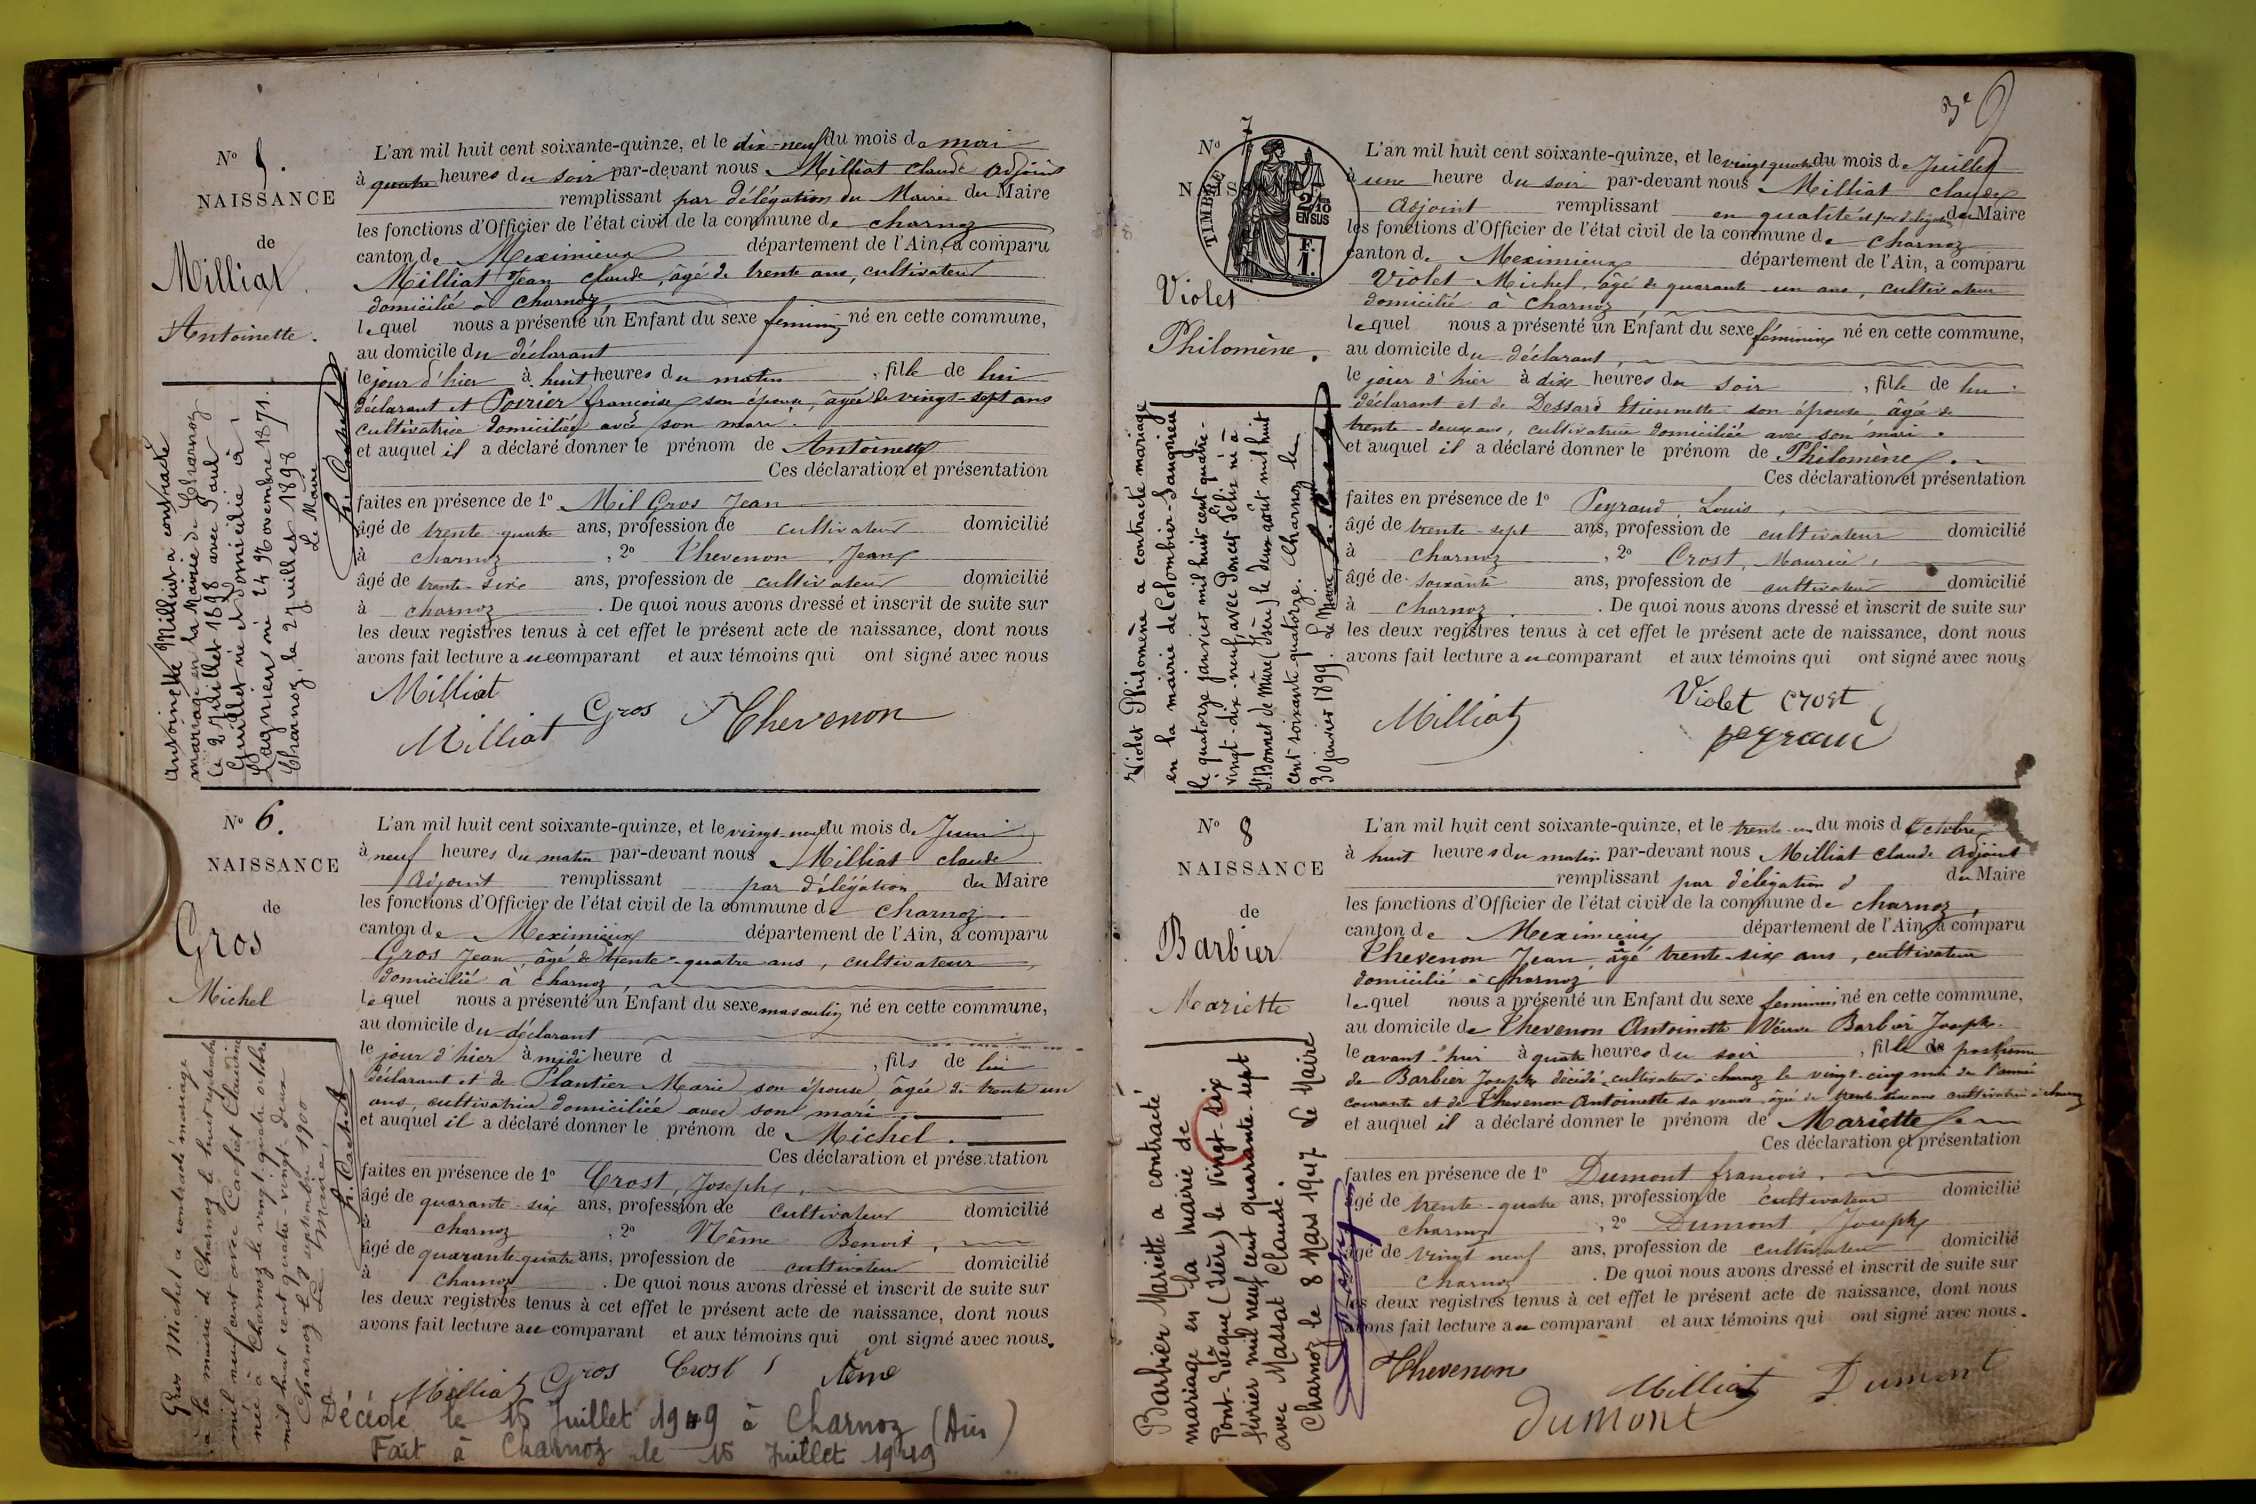 N° 5.
NAISSANCE
de
Milliat
Antoinette.
L'an mil huit cent soixante-quinze, et le dix-neuf du mois de mai
à quatre heures du soir par-devant nous Milliat claude adjoint
remplissant par délégation du Maire du Maire
les fonctions d'Officier de l'état civil de la commune de charnoz
canton de Meximieux département de l'Ain, a comparu
Milliat Jean claude, âgé de trente ans, cultivateur
domicilié à charnoz
lequel nous a présenté un Enfant du sexe feminin né en cette commune,
au domicile du déclarant
le jour d'hier à huit heures du matin, fille de lui
déclarant et Poirier françoise son épouse, âgée de vingt-sept ans
cultivatrice domiciliée avec son mari.
et auquel il a déclaré donner le prénom de Antoinette
Ces déclaration et présentation
faites en présence de 1° Mil Gros Jean
âgé de trente quatre ans, profession de cultivateur domicilié
à charnoz, 2° Thevenon Jean
âgé de trente-six ans, profession de cultivateur domicilié
à charnoz. De quoi nous avons dressé et inscrit de suite sur
les deux registres tenus à cet effet le présent acte de naissance, dont nous
avons fait lecture au comparant et aux témoins qui ont signé avec nous
Milliat
Milliat Gros Thevenon
Antoinette Milliat a contracté
mariage en la Mairie de Charnoz
le 2 Juillet 1898 avec Paul
Guillet né et domicilié à
Lagnieu né 24 Novembre 1871.
Charnoz, le 2 juillet 1898
Le Maire
N° 6.
NAISSANCE
de
Gros
Michel
L'an mil huit cent soixante-quinze, et le vingt-neuf du mois de Juin
à neuf heures du matin par-devant nous Milliat claude
Adjoint remplissant par délégation du Maire
les fonctions d'Officier de l'état civil de la commune de charnoz
canton de Meximieux département de l'Ain, a comparu
Gros Jean, âgé de trente-quatre ans, cultivateur
domicilié à charnoz,
lequel nous a présenté un Enfant du sexe masculin né en cette commune,
au domicile du déclarant
le jour d'hier à midi heure d, fils de lui
déclarant et de Plantier Marie son épouse âgée de trente un
ans, cultivatrice domiciliée avec son mari
et auquel il a déclaré donner le prénom de Michel.
Ces déclaration et présentation
faites en présence de 1° Crost, Joseph,
âgé de quarante-six ans, profession de cultivateur domicilié
à charnoz, 2° Nême Benoit,
âgé de quarante quatre ans, profession de cultivateur domicilié
à charnoz. De quoi nous avons dressé et inscrit de suite sur
les deux registres tenus à cet effet le présent acte de naissance, dont nous
avons fait lecture au comparant et aux témoins qui ont signé avec nous.
Milliat Gros Crost Nême
Décédé le 15 Juillet 1949 à Charnoz (Ain)
Fait à Charnoz le 15 Juillet 1949
Gros Michel a contracté mariage
à la mairie de Charnoz le huit septembre
mil neuf cent avec Claudine
née à Charnoz le vingt-quatre octobre
mil huit cent quatre-vingt-deux
Charnoz le 9 septembre 1900
Le Maire
39
N° 7
TIMBRE
2/10
EN SUS
F.
1.
Violet
Philomène.
L'an mil huit cent soixante-quinze, et le vingt quatre du mois de Juillet
à une heure du soir par-devant nous Milliat claude
Adjoint remplissant en qualité et par délégation du Maire
les fonctions d'Officier de l'état civil de la commune de charnoz
canton de Meximieux département de l'Ain, a comparu
Violet Michel, âgé de quarante-un ans, cultivateur
domicilié à charnoz
lequel nous a présenté un Enfant du sexe féminin né en cette commune,
au domicile du déclarant,
le jour d'hier à dix heures du soir, fille de lui
déclarant et de Dessard Etiennette son épouse âgée de
trente-deux ans, cultivatrice domiciliée avec son mari.
et auquel il a déclaré donner le prénom de Philomène.
Ces déclaration et présentation
faites en présence de 1° Peyraud Louis,
âgé de trente-sept ans, profession de cultivateur domicilié
à charnoz, 2° Crost, Maurice,
âgé de soixante ans, profession de cultivateur domicilié
à charnoz. De quoi nous avons dressé et inscrit de suite sur
les deux registres tenus à cet effet le présent acte de naissance, dont nous
avons fait lecture au comparant et aux témoins qui ont signé avec nous
Milliat Violet Crost
peyraud
Violet Philomène a contracté mariage
en la mairie de Colombier-Saugnieu
le quatorze janvier mil huit cent quatre-
vingt-dix-neuf, avec Poncet Félix né à
St Bonnet de Mûre (Isère) le deux août mil huit
cent soixante-quatorze. Charnoz le
30 janvier 1899. Le Maire,
N° 8
NAISSANCE
de
Barbier
Mariette
L'an mil huit cent soixante-quinze, et le trente-un du mois d'Octobre
à huit heures du matin par-devant nous Milliat claude adjoint
remplissant par délégation d du Maire
les fonctions d'Officier de l'état civil de la commune de charnoz,
canton de Meximieux département de l'Ain, a comparu
Thevenon Jean, âgé trente-six ans, cultivateur
domicilié à charnoz
lequel nous a présenté un Enfant du sexe feminin né en cette commune,
au domicile de Thevenon Antoinette Veuve Barbier Joseph.
le avant-hier à quatre heures du soir, fille de posthume
de Barbier Joseph décédé cultivateur à charnoz le vingt-cinq mai de l'année
courante et de Thevenon Antoinette sa veuve âgée de trente deux ans cultivatrice à charnoz
et auquel il a déclaré donner le prénom de Mariette
Ces déclaration et présentation
faites en présence de 1° Dumont françois.
âgé de trente-quatre ans, profession de cultivateur domicilié
charnoz, 2° Dumont, Joseph
âgé de vingt neuf ans, profession de cultivateur domicilié
charnoz. De quoi nous avons dressé et inscrit de suite sur
les deux registres tenus à cet effet le présent acte de naissance, dont nous
avons fait lecture au comparant et aux témoins qui ont signé avec nous.
Thevenon Milliat Dumont
dumont
Barbier Mariette a contracté
mariage en la mairie de
Pont-Evêque (Isère) le vingt-six
février mil neuf cent quarante-sept
avec Massat Claude.
Charnoz le 8 Mars 1947 Le Maire